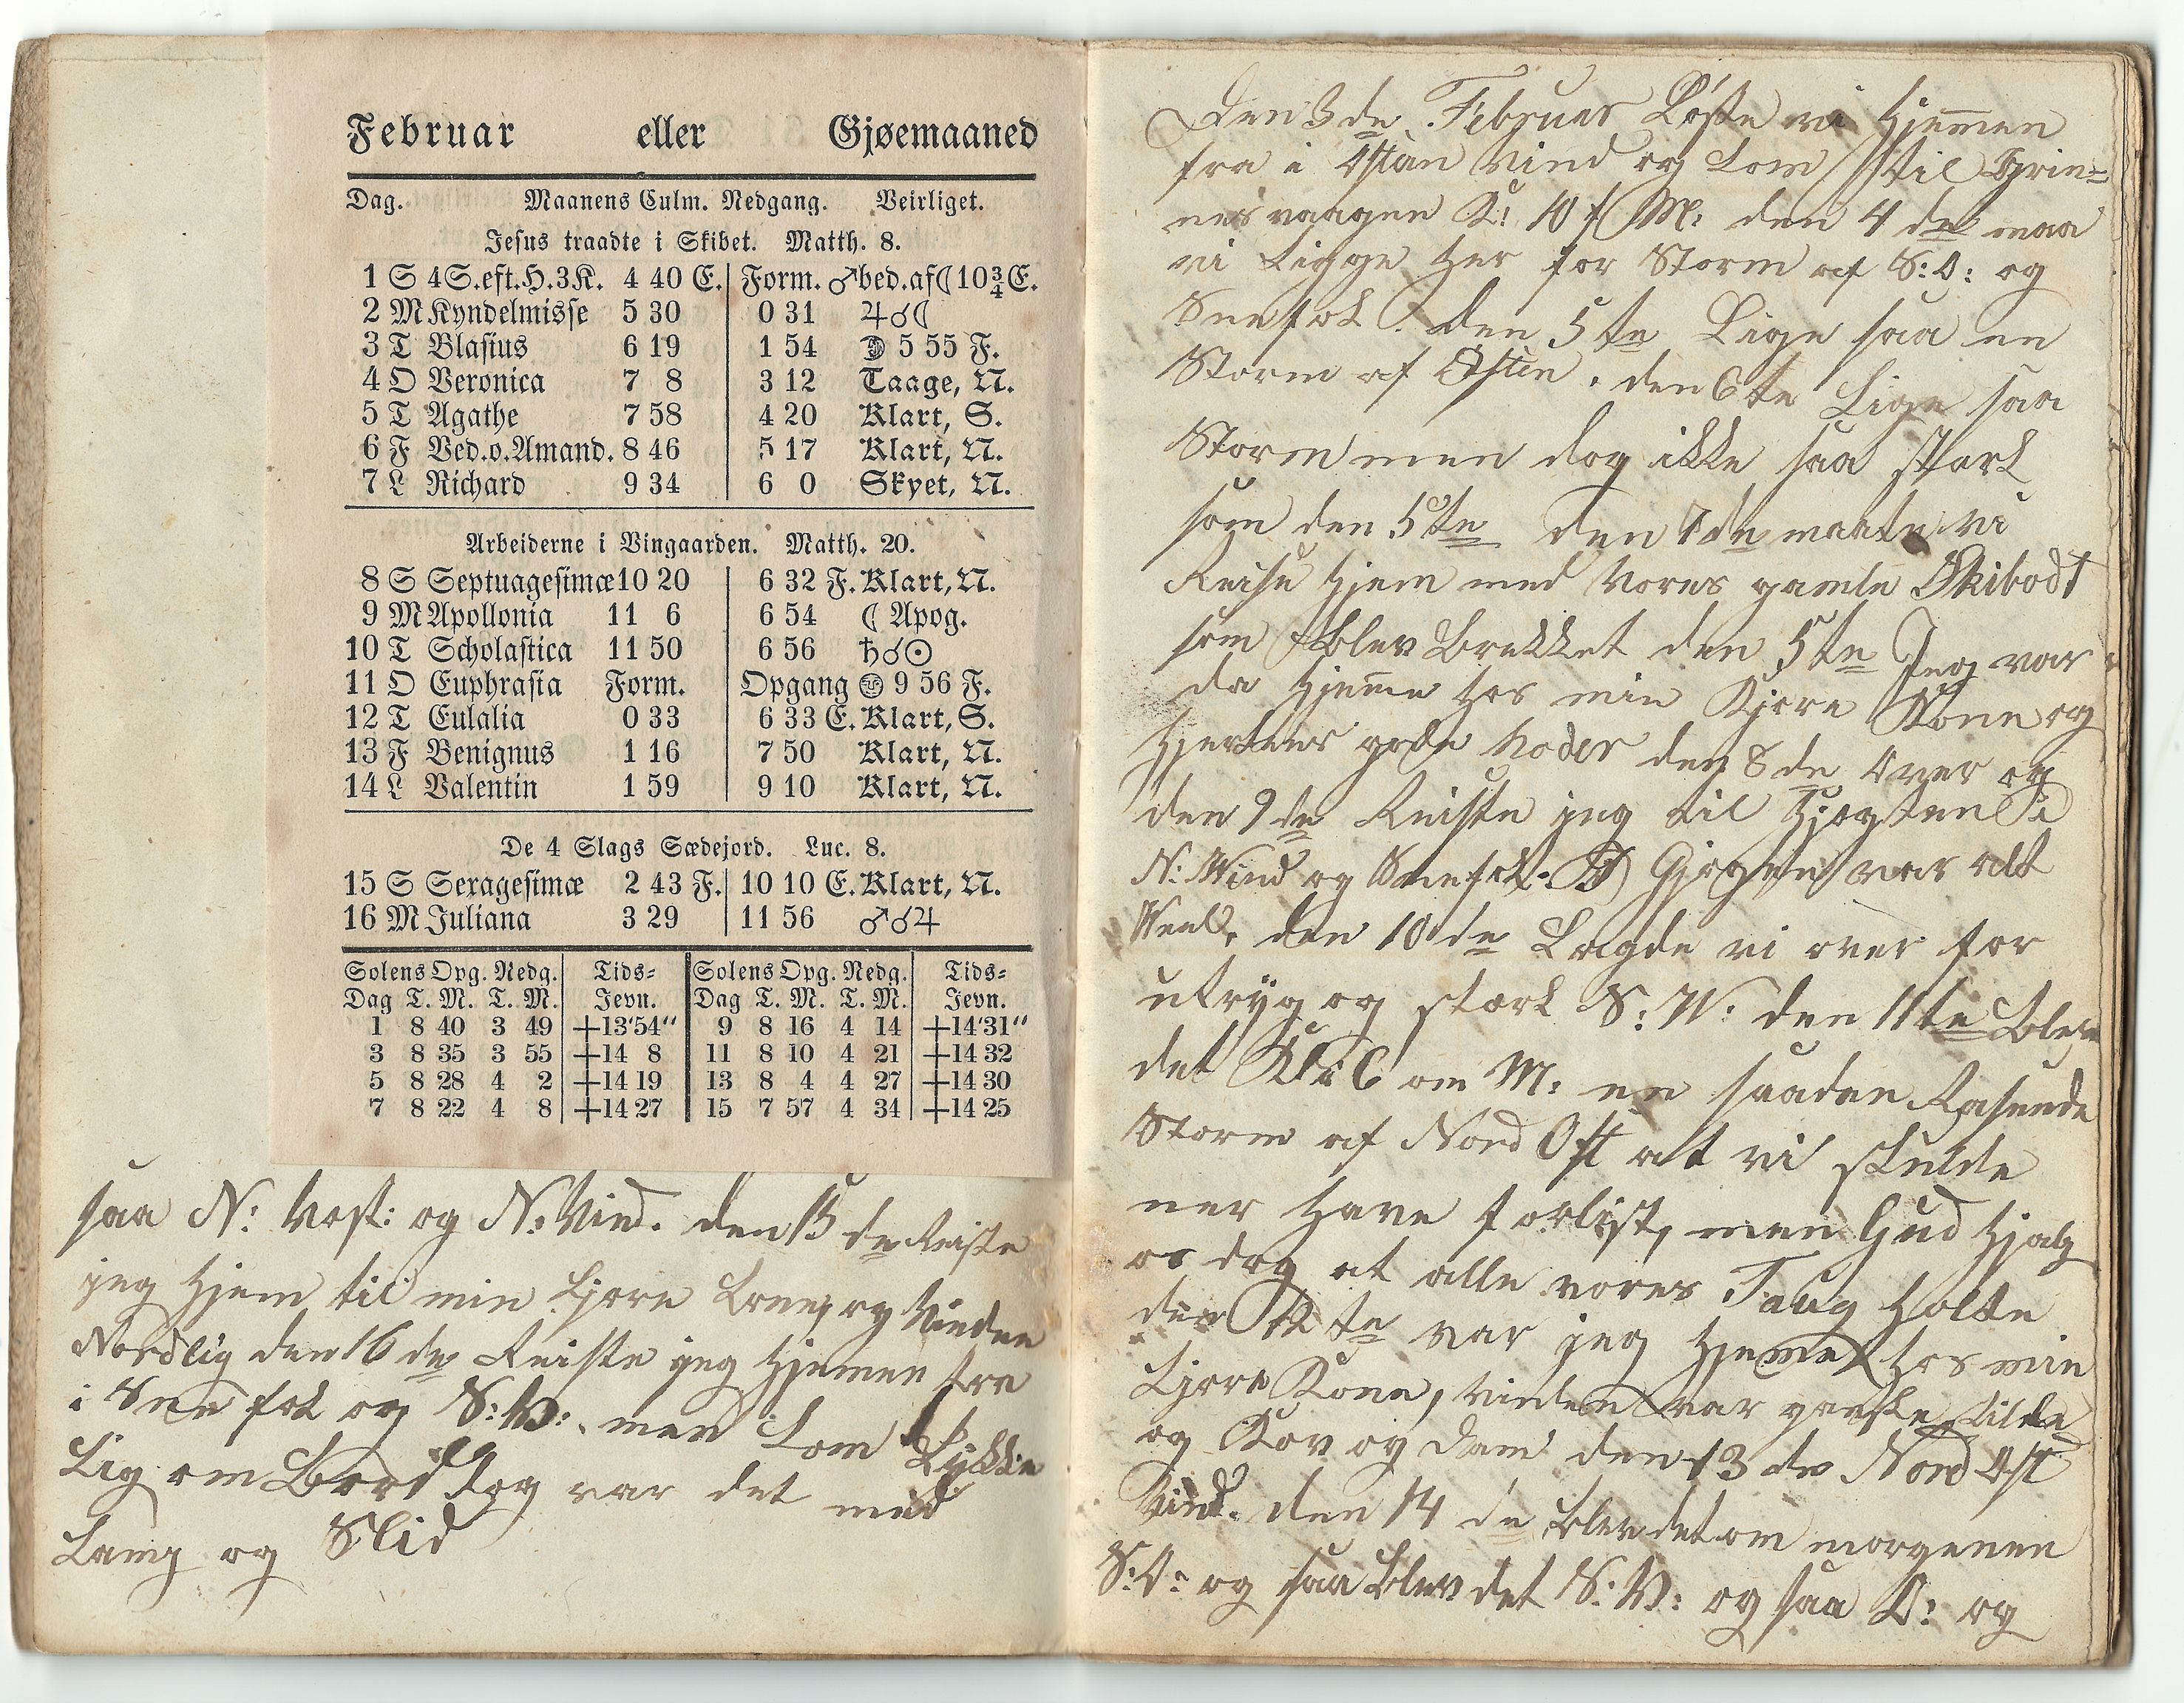 Februar eller Gjøemaaned
Dag. Maanens Culm. Nedgang. Veirliget.
Jesus traadte i Skibet. Matth. 8.
1 S 4S.eft.H.3K. 4 40 E. Form. ♂bed.af☾10¾E.
2 M Kyndelmisse 5 30 0 31 ♃☌☾
3 T Blasius 6 19 1 54 ☽ 5 55 F.
4 O Veronica 7 8 3 12 Taage, N.
5 T Agathe 7 58 4 20 Klart, S.
6 F Ved.o.Amand. 8 46 5 17 Klart, N.
7 L Richard 9 34 6 0 Skyet, N.
Arbeiderne i Vingaarden. Matth. 20.
8 S Septuagesimæ 10 20 6 32 F. Klart, N.
9 M Apollonia 11 6 6 54 ☾ Apog.
10 T Scholastica 11 50 6 56 ♄☌☉
11 O Euphrasia Form. Opgang 🌝 9 56 F.
12 T Eulalia 0 33 6 33 E. Klart, S.
13 F Benignus 1 16 7 50 Klart, N.
14 L Valentin 1 59 9 10 Klart, N.
De 4 Slags Sædejord. Luc. 8.
15 S Sexagesimæ 2 43 F. 10 10 E. Klart, N.
16 M Juliana 3 29 11 56 ♂☌♃
Solens Opg. Nedg. Tids= Solens Opg. Nedg. Tids=
Dag T. M. T. M. Jevn. Dag T. M. T. M. Jevn.
1 8 40 3 49 +13'54" 9 8 16 4 14 +14'31"
3 8 35 3 55 +14 8 11 8 10 4 21 +14 32
5 8 28 4 2 +14 19 13 8 4 4 27 +14 30
7 8 22 4 8 +14 27 15 7 57 4 34 +14 25
saa N: Vest: og N: Vind. den 15 de Reiste
jeg Hjem til min kjere kone, og Vinden
Nordlig den 16 de Reiste jeg Hjemen fra
i Snefok og S: V: men kom Lykke
Lig om Bord dog var det med
kamp og Slid
Den 3 de Februar Løste vi Hjemen
fra i Østan Vind og kom til
vaagen Kl: 10 f M: den 4 de maa
vi Ligge Her for Storm af S: O: og
Snefok. den 5 te Lige saa en
Storm af Østen. den 6 te Lige saa
Storm men dog ikke saa stark
som den 5 te den 7 de maate vi
Reise Hjem med Vores gamle Skibodt
som blev Brekket den 5 te Jeg var
da Hjeme hos min Kjere Kone og
Hjertens gode Moder den 8 de over og
den 9 de Reiste jeg til i
N: Wind og Snefok. var alt
Weel. den 10 de Lagde vi over for
utryg og stark S: W: den 11 te blev
det Kl 6 om M: en saadan Rasende
Storm af Nord Ost at vi skulde
ner Have forlist, men Gud Hjalp
os dog at alle vores Taug Holdte
den 12 te var jeg Hjeme Hos min
kjere Kone, Vinden var ganske stille
og Kov og dam den 13 de Nord Ost
Vind. den 14 de blev det om morgenen
S: O: og saa blev det S: V: og saa V: og